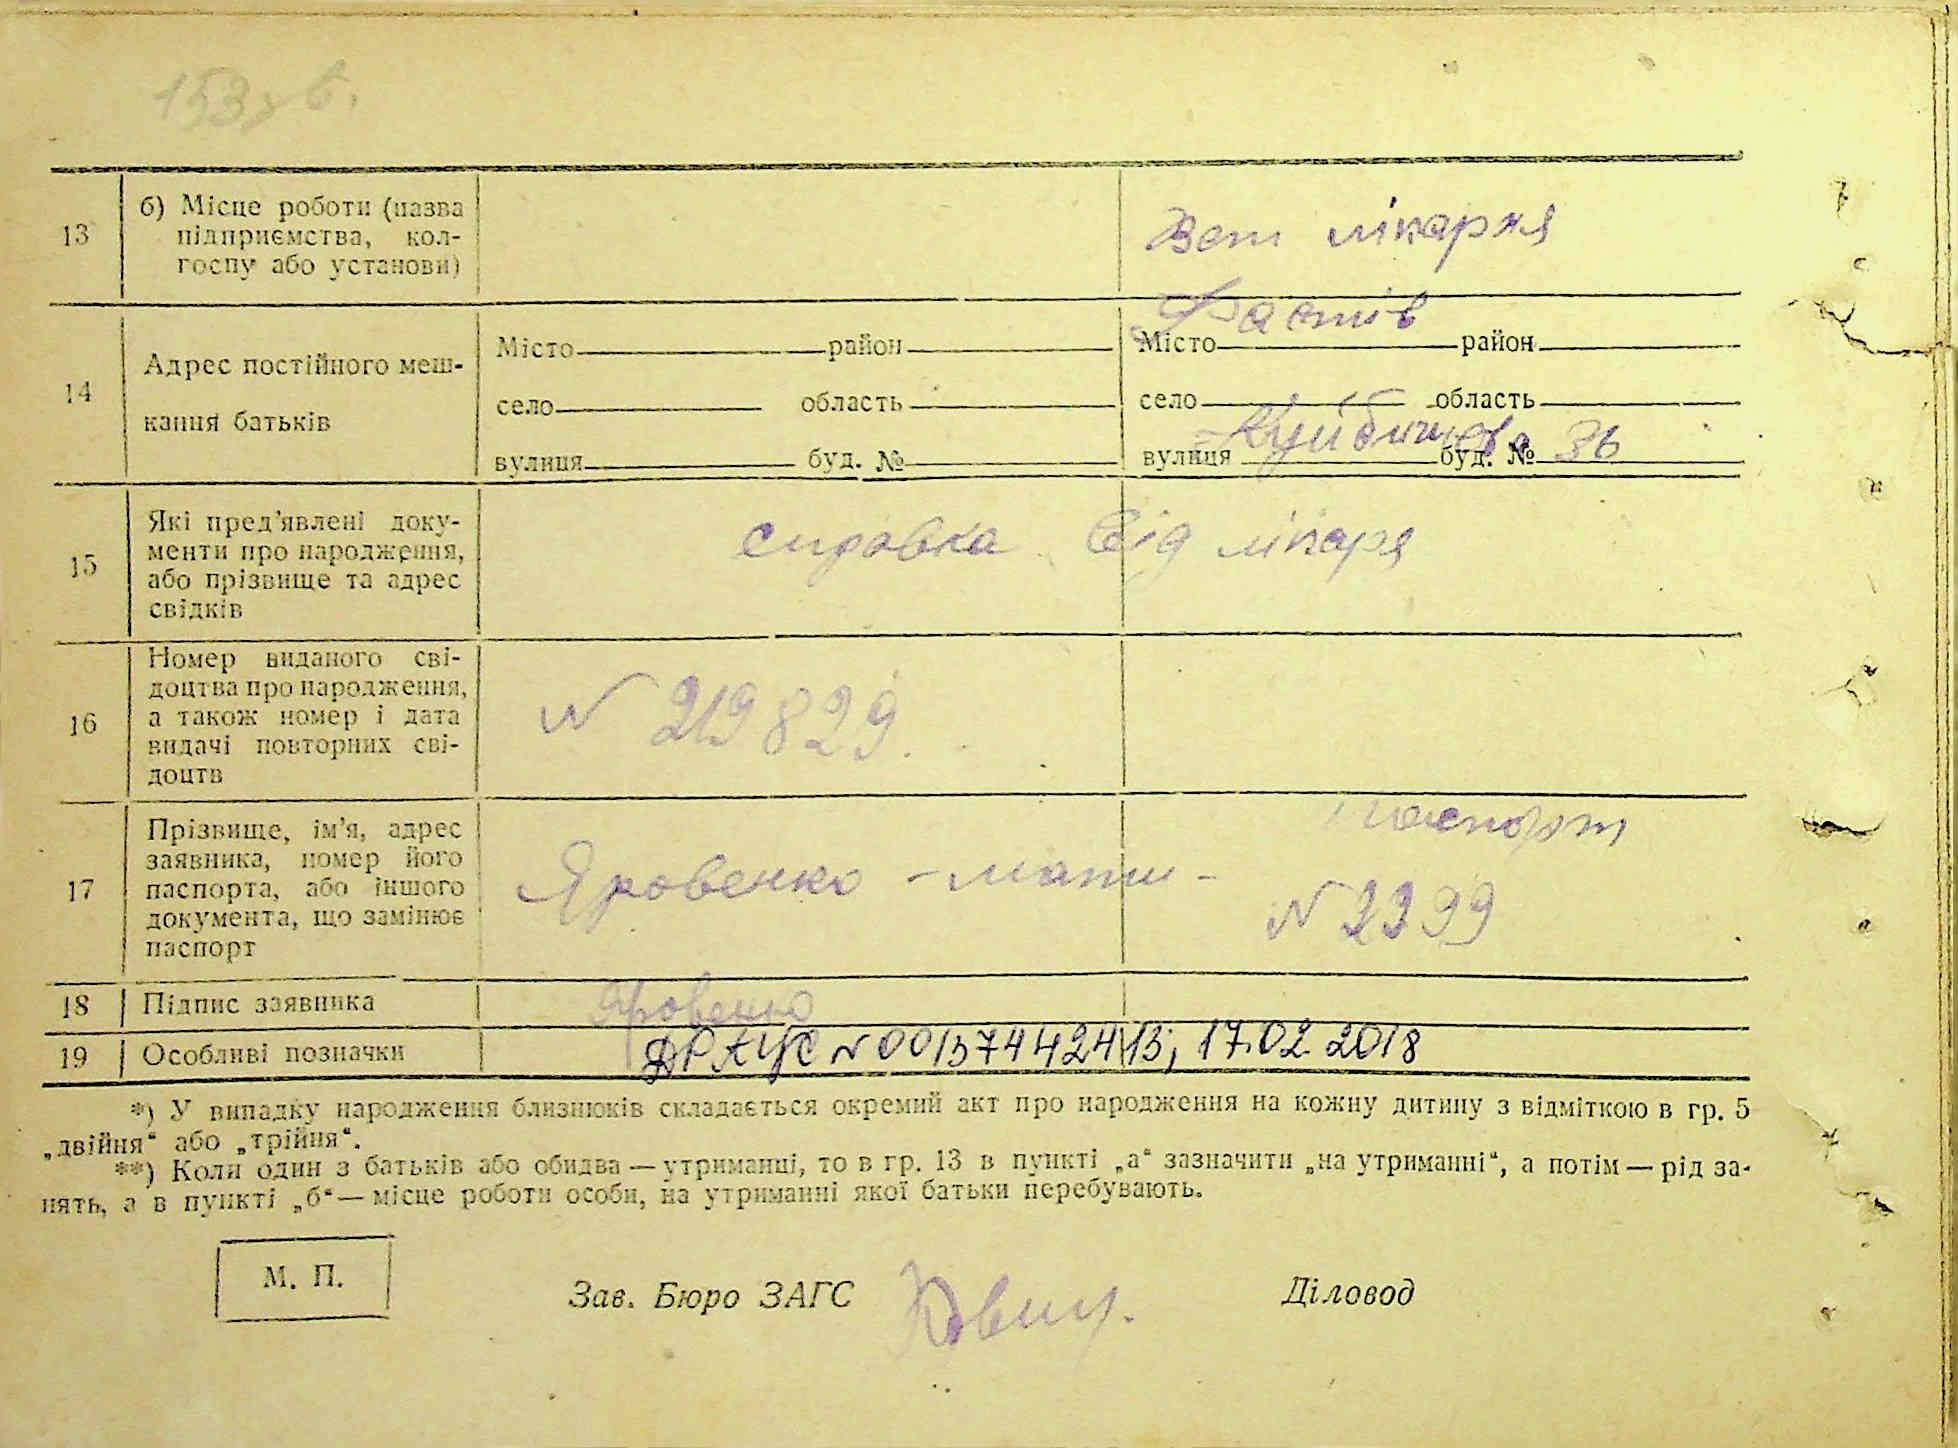 153 зв.
13 б) Місце роботи (назва підприємства, колгоспу або установи) Вет лікарня
14 Адрес постійного мешкання батьків
Місто район Місто Фастів район
село область село область
вулиця буд. № вулиця Куйбишева буд. № 36
15 Які пред'явлені документи про народження, або прізвище та адрес свідків справка від лікаря
16 Номер виданого свідоцтва про народження, а також номер і дата видачі повторних свідоцтв N 219829.
17 Прізвище, ім'я, адрес заявника, номер його паспорта, або іншого документа, що замінює паспорт Яровенко - мати - паспорт N 2299
18 Підпис заявника Яровенко
19 Особливі позначки ДРАЦС N 00137442413; 17.02.2018
*) У випадку народження близнюків складається окремий акт про народження на кожну дитину з відміткою в гр. 5
„двійня“ або „трійня“.
**) Коли один з батьків або обидва — утриманці, то в гр. 13 в пункті „а“ зазначити „на утриманні“, а потім — рід за-
нять, а в пункті „б“ — місце роботи особи, на утриманні якої батьки перебувають.
М. П. Зав. Бюро ЗАГС Діловод